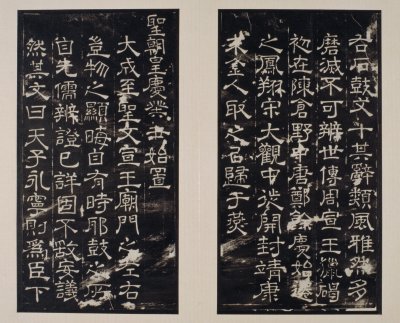 右石鼓文十其辭類風雅然多
磨滅不可辨世傳周宣王獵碣
初在陳倉野中唐鄭餘慶始遷
之鳳翔宋大觀中徙開封靖康
末金人取之以歸于燕
聖朝皇慶癸丑始置
大成至聖文宣王廟門之左右
豈物之顯晦自有時耶鼓之所
自先儒辨證已詳固不敢妄議
然其文曰天子永寧則爲臣下